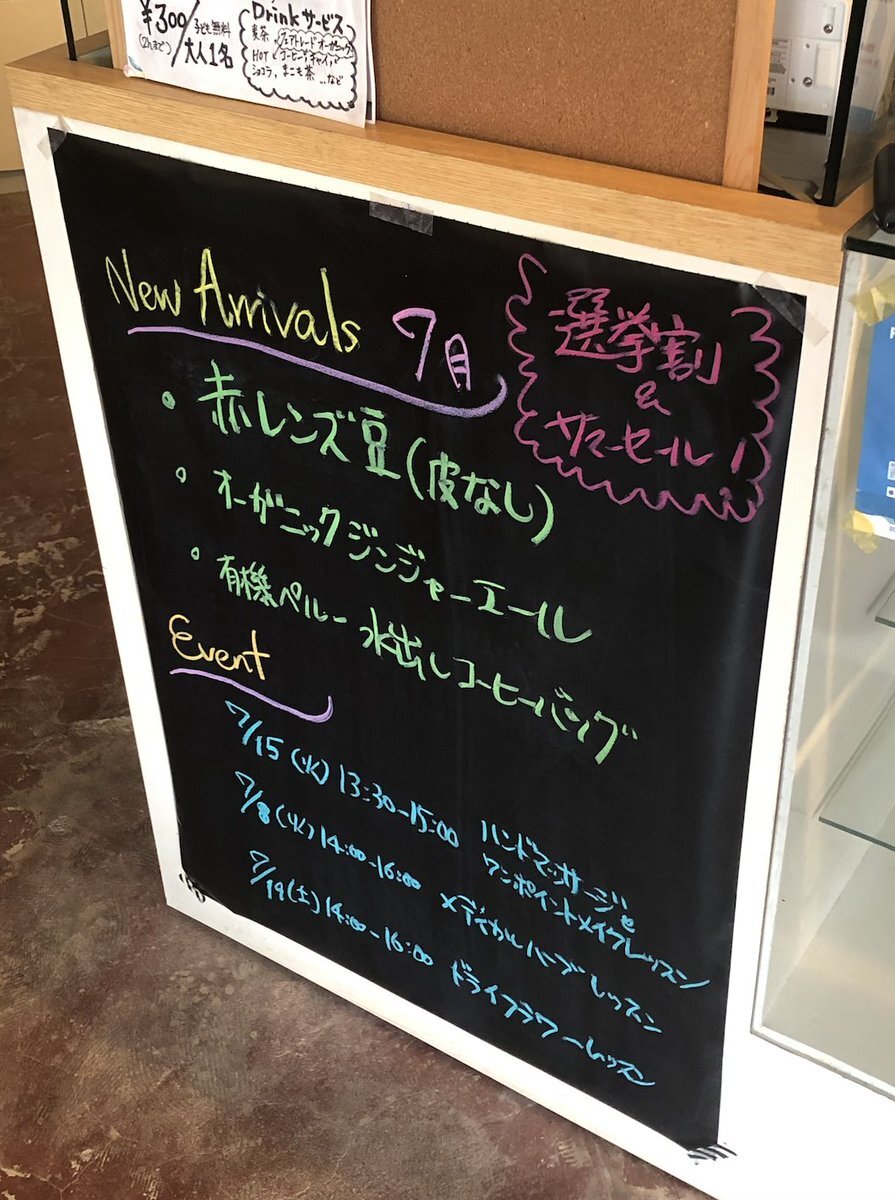 ¥300/子ども無料
(2hまで) 大人1名
Drinkサービス
麦茶、フェアトレードオーガニック
HOT コーヒー、チャイ、
ショコラ、まこも茶 …など
New Arrivals 7月
選挙割
&
サマーセール!
• 赤レンズ豆(皮なし)
• オーガニックジンジャーエール
• 有機ペルー水出しコーヒーバッグ
Event
7/15(火)13:30-15:00 ハンドマッサージと
ワンポイントメイクレッスン
7/8(火)14:00-16:00 メディカルハーブレッスン
7/19(土)14:00-16:00 ドライフラワーレッスン